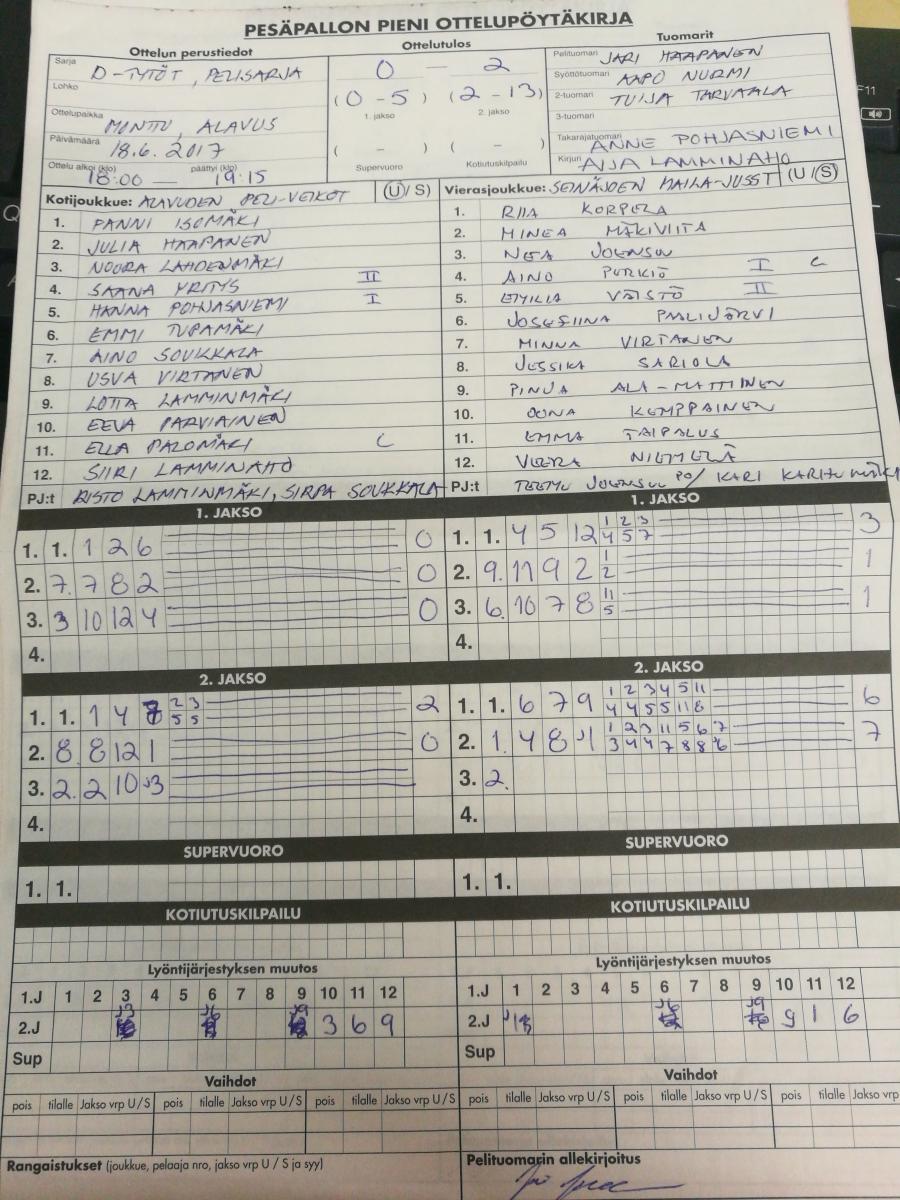 PESÄPALLON PIENI OTTELUPÖYTÄKIRJA
Ottelun perustiedot
Sarja D-TYTÖT, PELISARJA
Lohko
Ottelupaikka MONTTU, ALAVUS
Päivämäärä 18.6.2017
Ottelu alkoi (klo) päättyi (klo)
18:00 — 19:15
Ottelutulos
0 — 2
(0-5) (2-13)
1. jakso 2. jakso
( - ) ( - )
Supervuoro Kotiutuskilpailu
Tuomarit
Pelituomari JARI HAAPANEN
Syöttötuomari AAPO NURMI
2-tuomari TUIJA TARVAALA
3-tuomari
Takarajatuomari ANNE POHJASNIEMI
Kirjuri AIJA LAMMINAHO
Kotijoukkue: ALAVUDEN PELI-VEIKOT (U/S)
1. FANNI ISOMÄKI
2. JULIA HAAPANEN
3. NOORA LAHDENMÄKI
4. SAANA YRITYS II
5. HANNA POHJASNIEMI I
6. EMMI TUPAMÄKI
7. AINO SOUKKALA
8. USVA VIRTANEN
9. LOTTA LAMMINMÄKI
10. EEVA PARVIAINEN
11. ELLA PALOMÄKI C
12. SIIRI LAMMINAHO
PJ:t RISTO LAMMINMÄKI, SIRPA SOUKKALA
Vierasjoukkue: SEINÄJOEN MAILA-JUSSIT (U/S)
1. RIIA KORPELA
2. MINEA MÄKIVIITA
3. NEA JOENSUU
4. AINO PURKIÖ I C
5. EMILIA VÄISTÖ II
6. JOSEFIINA PAALIJÄRVI
7. MINNA VIRTANEN
8. JESSIKA SARIOLA
9. PINJA ALA-MATTINEN
10. OONA KEMPPAINEN
11. EMMA TAIPALUS
12. VEERA NIEMELÄ
PJ:t TEEMU JOENSUU PO/ KARI
1. JAKSO
1. 1. 1 2 6 0
2. 7. 7 8 2 0
3. 3 10 12 4 0
4.
1. JAKSO
1. 1. 4 5 12 1 2 3 3
4 5 7
2. 9. 11 9 2 1 1
2
3. 6. 10 7 8 11 1
5
4.
2. JAKSO
1. 1. 1 4 7 2 3 2
5 5
2. 8. 8 12 1 0
3. 2. 2 10 J3
4.
2. JAKSO
1. 1. 6 7 9 1 2 3 4 5 11 6
4 4 5 5 11 8
2. 1. 4 8 J1 1 2 3 11 5 6 7 7
3 4 4 7 8 8 6
3. 2.
4.
SUPERVUORO
1. 1.
SUPERVUORO
1. 1.
KOTIUTUSKILPAILU
KOTIUTUSKILPAILU
Lyöntijärjestyksen muutos
1.J 1 2 3 4 5 6 7 8 9 10 11 12
2.J J3 J6 J9 3 6 9
Sup
Lyöntijärjestyksen muutos
1.J 1 2 3 4 5 6 7 8 9 10 11 12
2.J J1 J6 J9 9 1 6
Sup
Vaihdot
pois tilalle Jakso vrp U/S pois tilalle Jakso vrp U/S
Vaihdot
pois tilalle Jakso vrp U/S pois tilalle Jakso vrp
Rangaistukset (joukkue, pelaaja nro, jakso vrp U / S ja syy)
Pelituomarin allekirjoitus